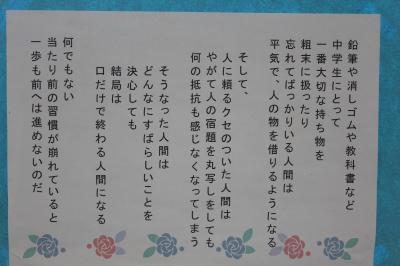 鉛筆や消しゴムや教科書など
中学生にとって
一番大切な持ち物を
粗末に扱ったり
忘れてばっかりいる人間は
平気で、人の物を借りるようになる
そして、
人に頼るクセのついた人間は
やがて人の宿題を丸写しをしても
何の抵抗も感じなくなってしまう
そうなった人間は
どんなにすばらしいことを
決心しても
結局は
口だけで終わる人間になる
何でもない
当たり前の習慣が崩れていると
一歩も前へは進めないのだ